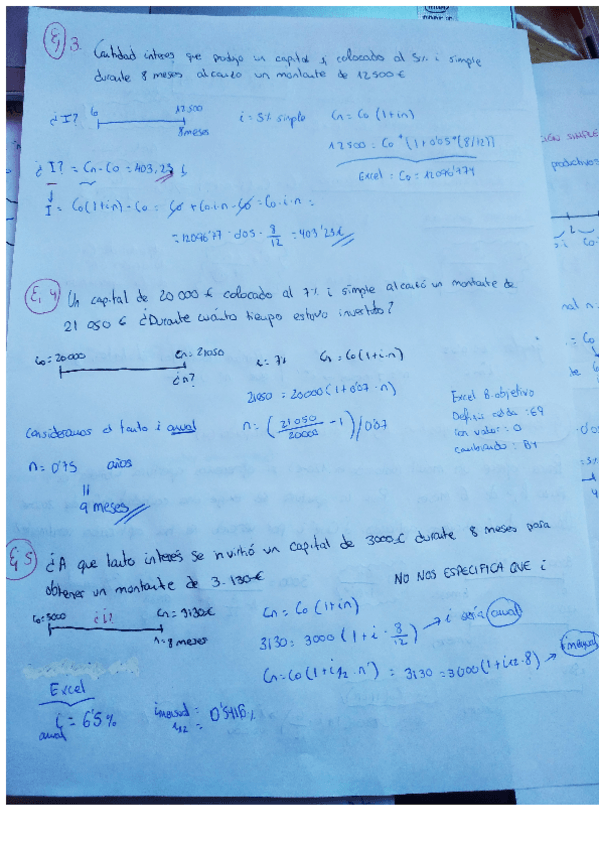 Ej 3. Cantidad interes que produjo un capital, colocado al 5% i simple
durante 8 meses alcanzo un montante de 12500€
¿I?
Co
12500
8 meses
i = 5% simple
Cn = Co (1+in)
12500 = Co * (1+0'05*(8/12))
Excel: Co = 12096'774
¿I? = Cn - Co = 403,23 €
I = Co(1+in) - Co = Co + Co·i·n - Co = Co·i·n =
= 12096'77 · 0'05 · 8/12 = 403'23€
Ej 4. Un capital de 20000€ colocado al 7% i simple alcanzó un montante de
21050 € ¿Durante cuánto tiempo estuvo invertido?
Co = 20000
Cn = 21050
¿n?
i = 7%
Cn = Co(1+in)
21050 = 20000 (1+0'07·n)
Consideramos el tanto i anual
n = (21050/20000 - 1)/0'07
Excel B. objetivo
Definir celda: E9
con valor: 0
cambiando: B7
n = 0'75 años
=
9 meses
Ej 5 ¿A que tanto interés se invirtió un capital de 3000€ durante 8 meses para
obtener un montante de 3.130€
NO NOS ESPECIFICA QUE i
Co = 3000
¿i?
Cn = 3130€
n = 8 meses
Cn = Co (1+in)
3130 = 3000 (1+i·8/12) → i sería anual
Cn = Co (1+i12·n') = 3130 = 3000(1+i12·8) → imensual
Excel
i = 6'5%
anual
imensual =
i12 = 0'5416%
SIMPLE
productivos